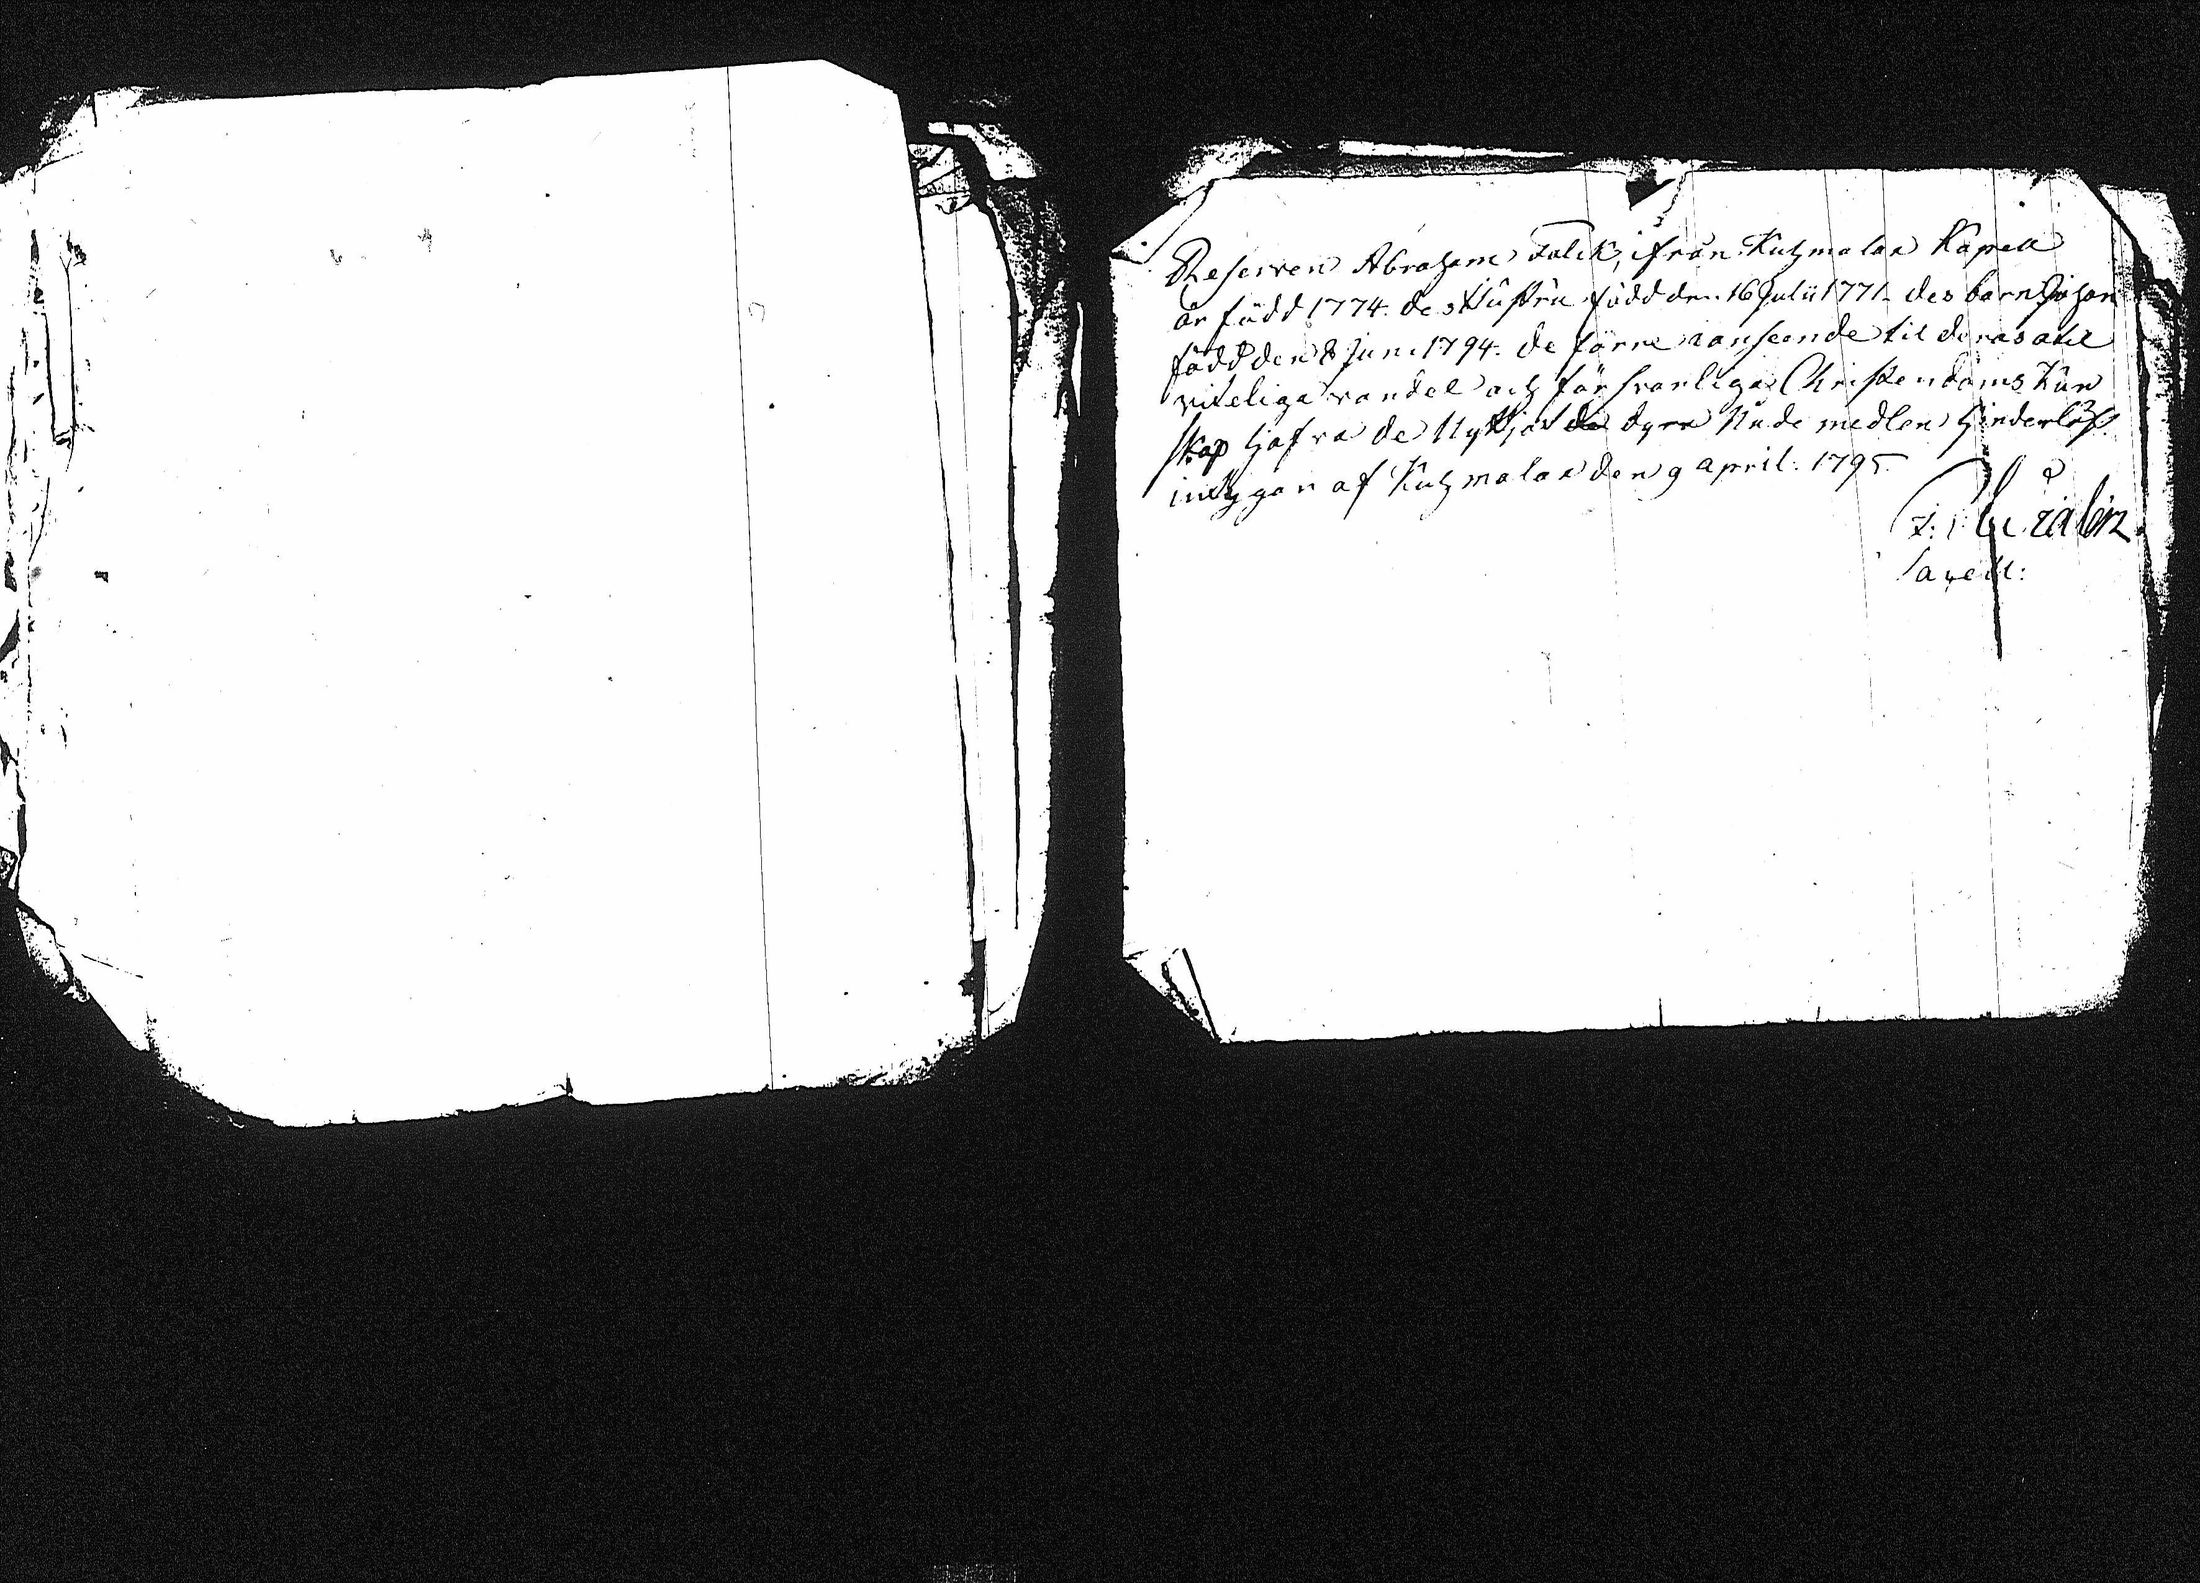 Reserven Abraham Falck, ifrån Kuhmalax Kapell
är född 1774. des Hustru född den 16 Julii 1771. des barn Johan
född den 8 Juni 1794. de förre i anseende til deras
viteliga vandel och försvarliga Christendoms Kun
skap hafva de Nyttjat de dyra Nåde medlen hinderlöst
intygar af Kuhmalax den 9 april. 1795.
Sacell: